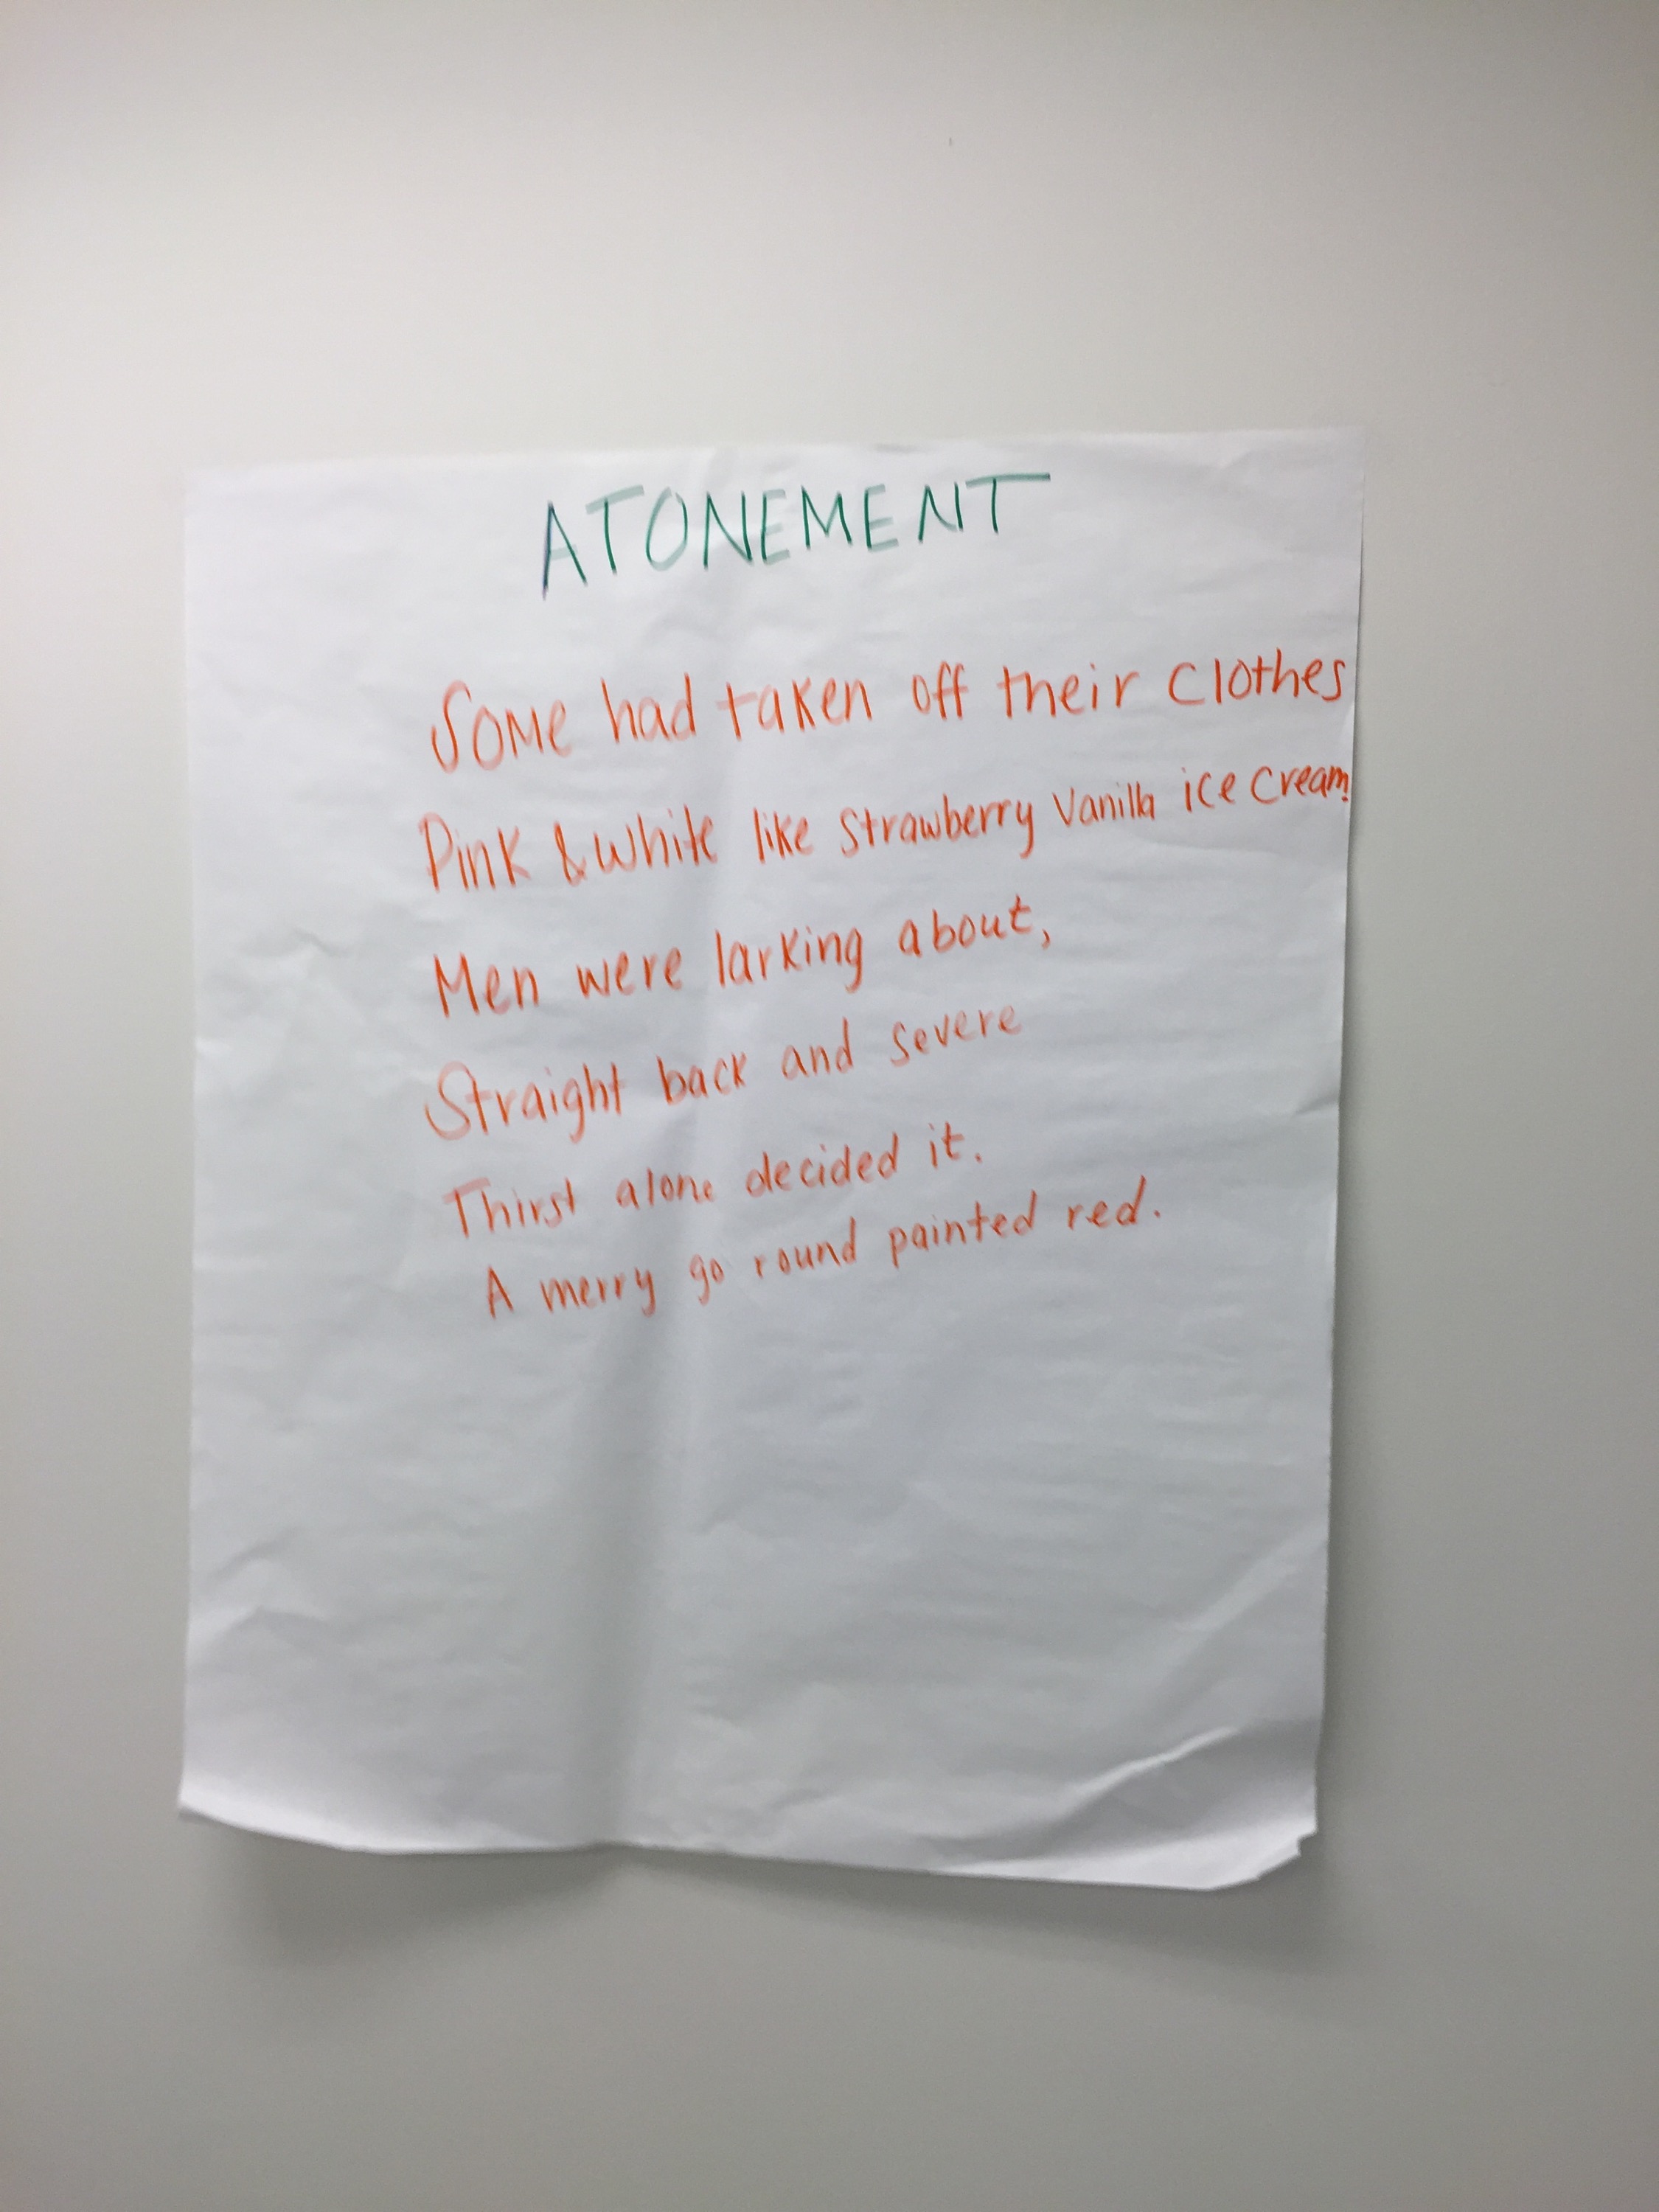 ATONEMENT
Some had taken off their clothes
Pink & white like strawberry vanilla ice cream!
Men were larking about,
Straight back and severe
Thirst alone decided it.
A merry go round painted red.